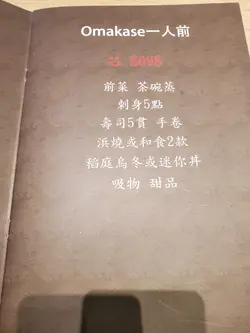 Omakase一人前
前菜 茶碗蒸
刺身5點
壽司5貫 手卷
浜燒或和食2款
稻庭烏冬或迷你丼
吸物 甜品